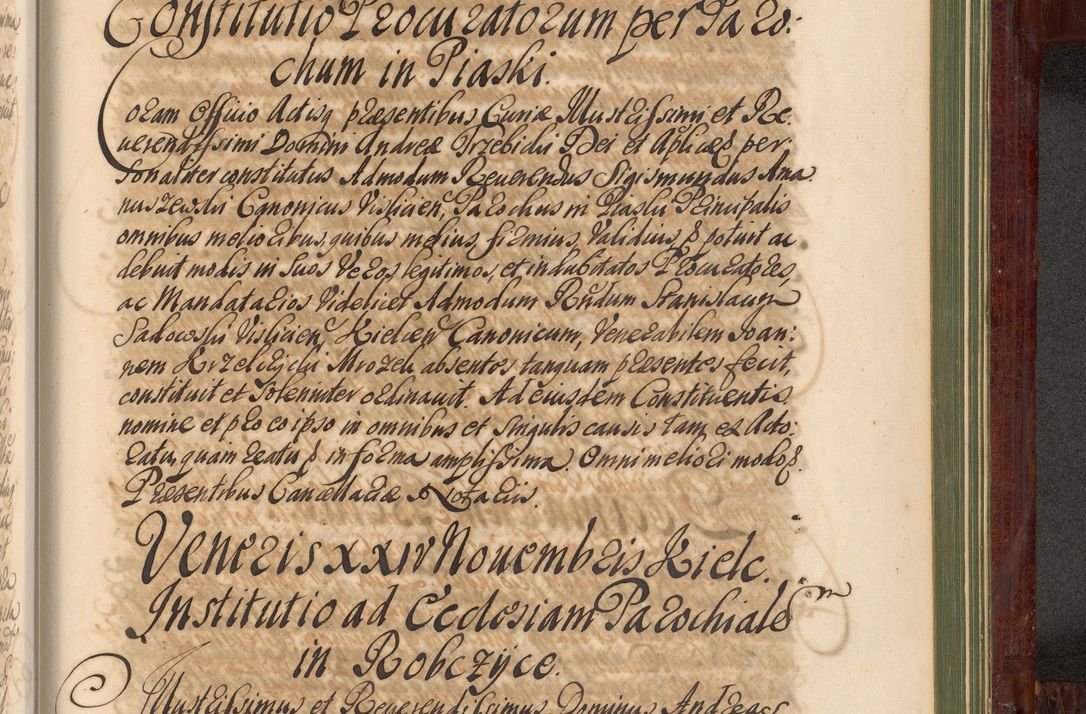 Constitutio Procuratorum per Paro-
chum in Piaski.
Coram Officio Actisq præsentibus Curiæ Illustrissimi et Re-
verendissimi Domini Andreæ Trzebicki Dei et Aplicæ & per-
sonaliter constitutus Admodum Reverendus Sigismundus Ama
nuszewski Canonicus Vislicien, Parochus in Piaski Principalis
omnibus melioribus, quibus melius, firmius, Validius, & potuit ac
debuit modis in suos Veros legitimos, et indubitatos Procuratores,
ac Mandatarios Videlicet Admodum Rndum Stanislaum
Sadowski Vislicien, Kielcen Canonicum, Venerabilem Joan:
nem Krzel Mrozek absentes tanquam præsentes fecit,
constituit et Solenniter ordinavit. Ad eiusdem Constituentis
nomine et pro eo ipso in omnibus et singulis causis tam ex Acto:
ratu, quam reatu & in forma amplissima. Omni meliori modo &.
Præsentibus Cancellariæ Notariis.
Veneris XXIV Novembris Kielc.
Institutio ad Ecclesiam Parochialem
in Robczyce.
Illustrissimus et Reverendissimus Dominus Andreas